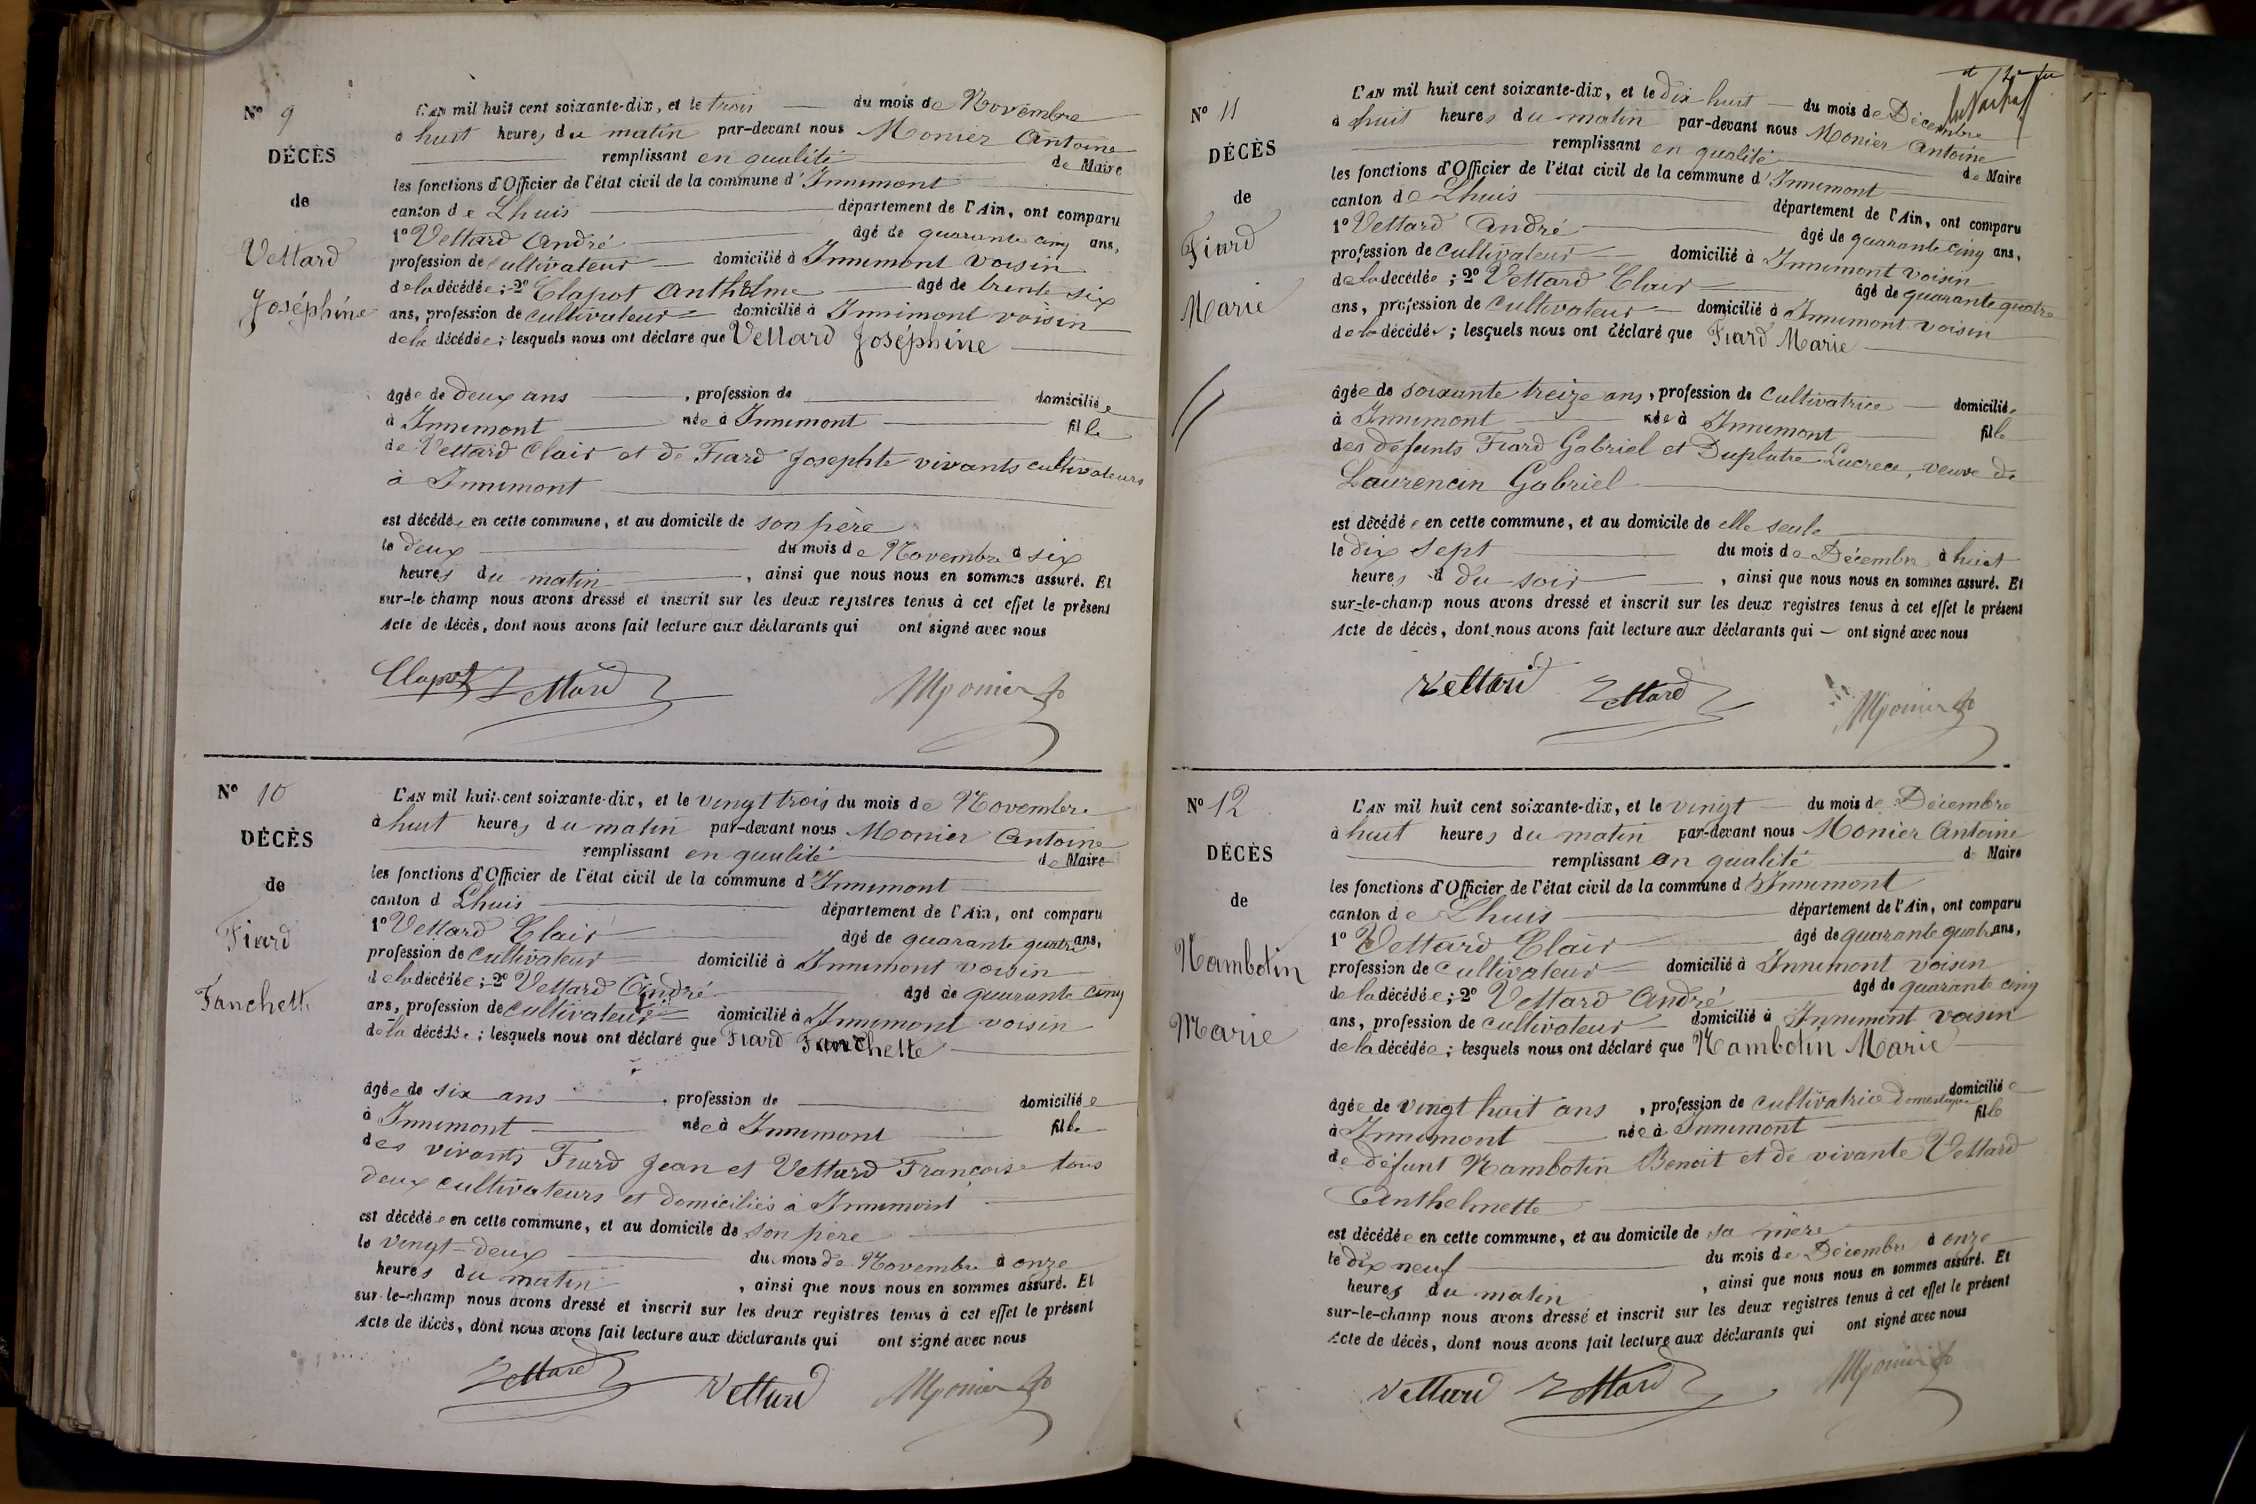 N° 9
DÉCÈS
de
Vettard
Joséphine
L'AN mil huit cent soixante-dix, et le trois du mois de Novembre
à huit heures du matin par-devant nous Monier Antoine
remplissant en qualité de Maire
les fonctions d'Officier de l'état civil de la commune d'Innimont
canton de Lhuis département de l'Ain, ont comparu
1° Vettard André âgé de quarante cinq ans,
profession de cultivateur domicilié à Innimont voisin
de la décédée; 2° Clapot Anthelme âgé de trente six
ans, profession de cultivateur domicilié à Innimont voisin
de la décédée; lesquels nous ont déclaré que Vettard Joséphine
âgée de deux ans, profession de domiciliée
à Innimont née à Innimont fille
de Vettard Clair et de Fiard Josephte vivants cultivateurs
à Innimont
est décédée en cette commune, et au domicile de son père
le deux du mois de Novembre à six
heures du matin, ainsi que nous nous en sommes assuré. Et
sur-le-champ nous avons dressé et inscrit sur les deux registres tenus à cet effet le présent
Acte de décès, dont nous avons fait lecture aux déclarants qui ont signé avec nous
Clapot Vettard AMonier
N° 10
DÉCÈS
de
Fiard
Fanchette
L'AN mil huit cent soixante-dix, et le vingt trois du mois de Novembre
à huit heures du matin par-devant nous Monier Antoine
remplissant en qualité de Maire
les fonctions d'Officier de l'état civil de la commune d'Innimont
canton d Lhuis département de l'Ain, ont comparu
1° Vettard Clair âgé de quarante quatre ans,
profession de cultivateur domicilié à Innimont voisin
de la décédée; 2° Vettard André âgé de quarante cinq
ans, profession de cultivateur domicilié à Innimont voisin
de la décédée; lesquels nous ont déclaré que Fiard Fanchette
âgée de six ans, profession de domiciliée
à Innimont née à Innimont fille
des vivants Fiard Jean et Vettard Françoise tous
deux cultivateurs et domiciliés à Innimont
est décédée en cette commune, et au domicile de son père
le vingt-deux du mois de Novembre à onze
heures du matin, ainsi que nous nous en sommes assuré. Et
sur-le-champ nous avons dressé et inscrit sur les deux registres tenus à cet effet le présent
Acte de décès, dont nous avons fait lecture aux déclarants qui ont signé avec nous
Vettard Vettard AMonier
N° 11
DÉCÈS
de
Fiard
Marie
L'AN mil huit cent soixante-dix, et le dix huit du mois de Décembre
à huit heures du matin par-devant nous Monier Antoine
remplissant en qualité de Maire
les fonctions d'Officier de l'état civil de la commune d'Innimont
canton de Lhuis département de l'Ain, ont comparu
1° Vettard André âgé de quarante cinq ans,
profession de cultivateur domicilié à Innimont voisin
de la décédée; 2° Vettard Clair âgé de quarante quatre
ans, profession de cultivateur domicilié à Innimont voisin
de la décédée; lesquels nous ont déclaré que Fiard Marie
âgée de soixante treize ans, profession de cultivatrice domiciliée
à Innimont née à Innimont fille
des défunts Fiard Gabriel et Duplatre Lucrece, veuve de
Laurencin Gabriel
est décédée en cette commune, et au domicile de elle seule
le dix sept du mois de Décembre à huit
heures d du soir, ainsi que nous nous en sommes assuré. Et
sur-le-champ nous avons dressé et inscrit sur les deux registres tenus à cet effet le présent
Acte de décès, dont nous avons fait lecture aux déclarants qui ont signé avec nous
Vettard Vettard AMonier
N° 12
DÉCÈS
de
Nambotin
Marie
L'AN mil huit cent soixante-dix, et le vingt du mois de Décembre
à huit heures du matin par-devant nous Monier Antoine
remplissant en qualité d Maire
les fonctions d'Officier de l'état civil de la commune d'Innimont
canton de Lhuis département de l'Ain, ont comparu
1° Vettard Clair âgé de quarante quatre ans,
profession de cultivateur domicilié à Innimont voisin
de la décédée; 2° Vettard André âgé de quarante cinq
ans, profession de cultivateur domicilié à Innimont voisin
de la décédée; lesquels nous ont déclaré que Nambotin Marie
âgée de vingt huit ans, profession de cultivatrice domestique domiciliée
à Innimont née à Innimont fille
de défunt Nambotin Benoit et de vivante Vettard
Anthelmette
est décédée en cette commune, et au domicile de sa mère
le dix neuf du mois de Décembre à onze
heures du matin, ainsi que nous nous en sommes assuré. Et
sur-le-champ nous avons dressé et inscrit sur les deux registres tenus à cet effet le présent
Acte de décès, dont nous avons fait lecture aux déclarants qui ont signé avec nous
Vettard Vettard AMonier